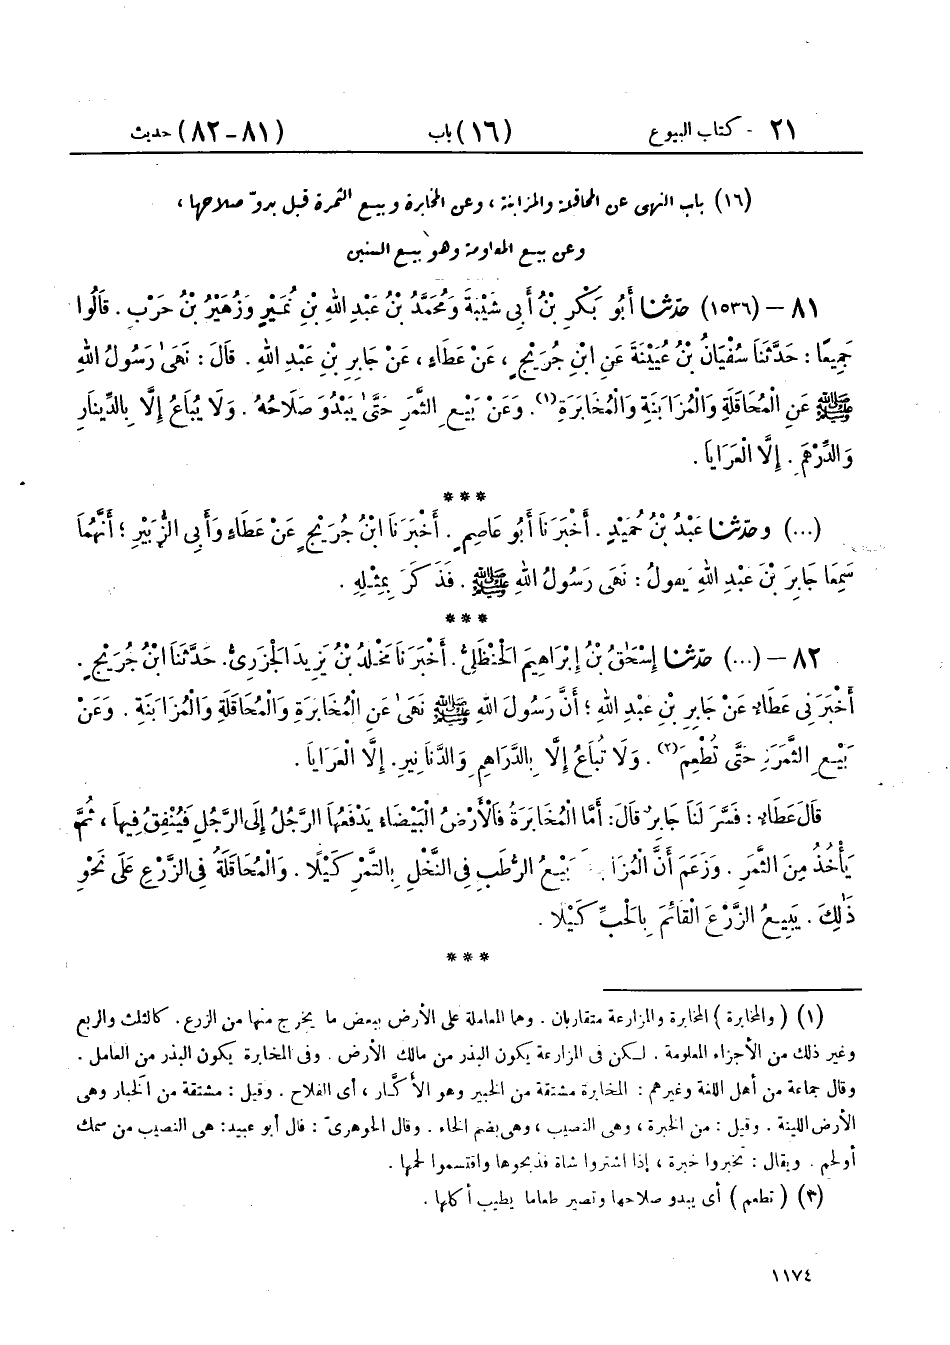 ٢١ - كتاب البيوع (١٦) باب (٨١-٨٢) حديث
(١٦) باب النهى عن المحاقلة والمزابنة ، وعن المخابرة وبيع الثمرة قبل بدوّ صلاحها ،
وعن بيع المعاومة وهو بيع السنين
٨١ – (١٥٣٦) حدّثنا أَبُو بَكْرِ بْنُ أَبِي شَيْبَةَ وَمُحَمَّدُ بْنُ عَبْدِ اللهِ بْنِ نُمَيْرٍ وَزُهَيْرُ بْنُ حَرْبٍ . قَالُوا
جَمِيعًا : حَدَّثَنَا سُفْيَانُ بْنُ عُيَيْنَةَ عَنِ ابْنِ جُرَيْجٍ ، عَنْ عَطَاءٍ ، عَنْ جَابِرِ بْنِ عَبْدِ اللهِ . قَالَ : نَهَىٰ رَسُولُ اللهِ
ﷺ عَنِ الْمُحَاقَلَةِ وَالْمُزَابَنَةِ وَالْمُخَابَرَةِ(١). وَعَنْ بَيْعِ الثَّمَرِ حَتَّىٰ يَبْدُوَ صَلَاحُهُ . وَلَا يُبَاعُ إِلَّا بِالدِّينَارِ
وَالدِّرْهَمِ . إِلَّا الْعَرَايَا .
***
(...) وحدّثنا عَبْدُ بْنُ حُمَيْدٍ . أَخْبَرَنَا أَبُو عَاصِمٍ . أَخْبَرَنَا ابْنُ جُرَيْجٍ عَنْ عَطَاءٍ وَأَبِي الزُّبَيْرِ ؛ أَنَّهُمَا
سَمِعَا جَابِرَ بْنَ عَبْدِ اللهِ يَقُولُ : نَهَى رَسُولُ اللهِ ﷺ . فَذَكَرَ بِمِثْلِهِ .
***
٨٢ – (...) حدّثنا إِسْحَٰقُ بْنُ إِبْرَاهِيمَ الْحَنْظَلِيُّ. أَخْبَرَنَا مَخْلَدُ بْنُ يَزِيدَ الْجَزَرِيُّ. حَدَّثَنَا ابْنُ جُرَيْجٍ .
أَخْبَرَنِي عَطَاءٌ عَنْ جَابِرِ بْنِ عَبْدِ اللهِ ؛ أَنَّ رَسُولَ اللهِ ﷺ نَهَىٰ عَنِ الْمُخَابَرَةِ وَالْمُحَاقَلَةِ وَالْمُزَابَنَةِ . وَعَنْ
بَيْعِ الثَّمَرَةِ حَتَّى تُطْعِمَ(٢) . وَلَا تُبَاعُ إِلَّا بِالدَّرَاهِمِ وَالدَّنَانِيرِ. إِلَّا الْعَرَايَا .
قَالَ عَطَاءٌ : فَسَّرَ لَنَا جَابِرٌ قَالَ: أَمَّا الْمُخَابَرَةُ فَالْأَرْضُ الْبَيْضَاءُ يَدْفَعُهَا الرَّجُلُ إِلَى الرَّجُلِ فَيُنْفِقُ فِيهَا ، ثُمَّ
يَأْخُذُ مِنَ الثَّمَرِ . وَزَعَمَ أَنَّ بَيْعُ الرُّطَبِ فِي النَّخْلِ بِالتَّمْرِ كَيْلًا . وَالْمُحَاقَلَةُ فِي الزَّرْعِ عَلَى نَحْوِ
ذَٰلِكَ . يَبِيعُ الزَّرْعَ الْقَائِمَ بِالْحَبِّ كَيْلًا .
***
(١) ( والمخابرة ) المخابرة والمزارعة متقاربان . وهما المعاملة على الأرض ببعض ما يخرج منها من الزرع . كالثلث والربع
وغير ذلك من الأجزاء المعلومة . لكن فى المزارعة يكون البذر من مالك الأرض . وفى المخابرة يكون البذر من العامل .
وقال جماعة من أهل اللغة وغيرهم : المخابرة مشتقة من الخبير وهو الأكّار ، أى الفلاح . وقيل : مشتقة من الخبار وهى
الأرض اللينة . وقيل : من الخبرة ، وهى النصيب ، وهى بضم الخاء . وقال الجوهرىّ : قال أبو عبيد: هى النصيب من سمك
أو لحم . ويقال : تخبروا خبرة ، إذا اشتروا شاة فذبحوها واقتسموا لحمها .
(٣) ( تطعم ) أى يبدو صلاحها وتصير طعاما يطيب أكلها .
١١٧٤